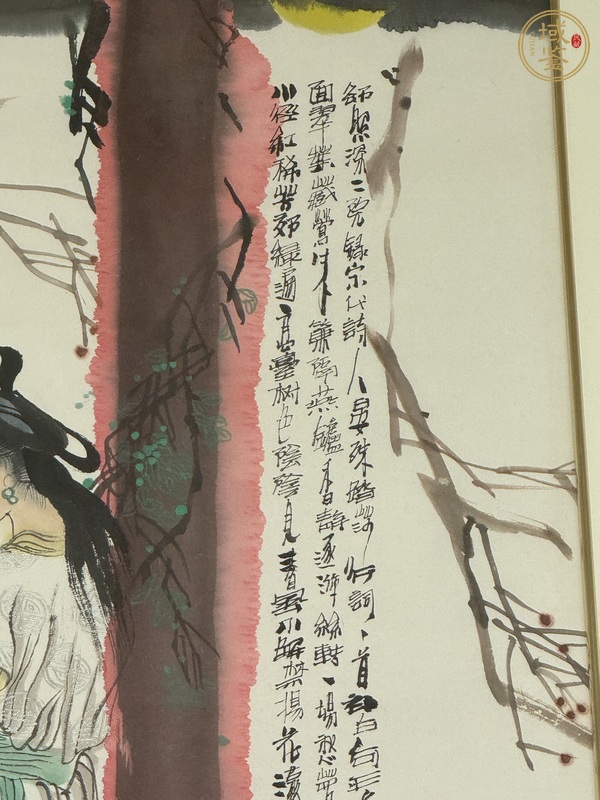 小徑紅稀芳郊緑遍高臺树色陰陰見春風不解禁揚花濛
面翠葉藏鶯朱簾隔燕鑪香静逐游絲轉一場愁夢
卻照深二院録宋代詩人晏殊踏莎行詞一首
域鉴